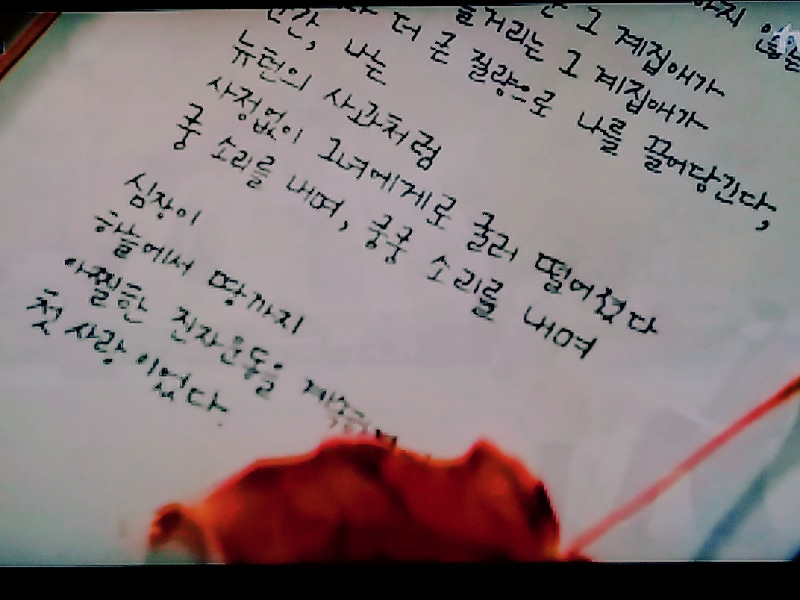 않는
그 계집애가
그 계집애가
더 큰 질량으로 나를 끌어당긴다,
나는
뉴턴의 사과처럼
사정없이 그녀에게로 굴러 떨어졌다
쿵 소리를 내며, 쿵쿵 소리를 내며
심장이
하늘에서 땅까지
아찔한 진자운동을
첫사랑이었다.